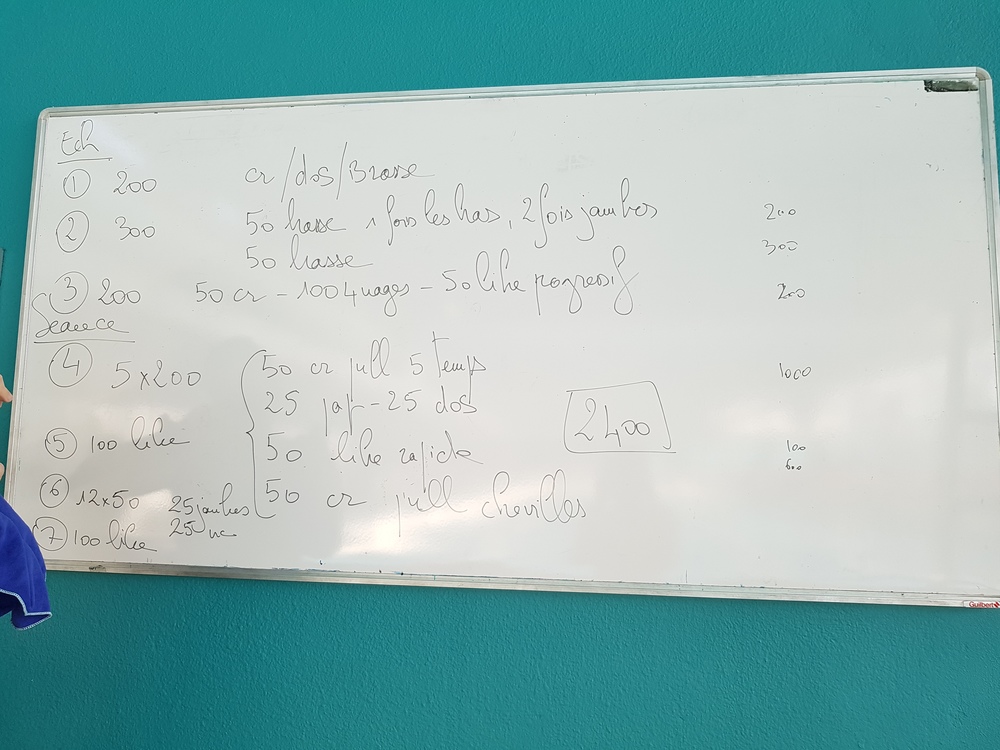 Ech
① 200 cr/dos/Brasse
② 300 50 brasse 1 fois les bras, 2 fois jambes 200
50 brasse 300
③ 200 50 cr - 100 4 nages - 50 libre progressif 200
Séance
④ 5 x 200 50 cr pull 5 temps 1000
25 pap - 25 dos
2400
⑤ 100 libre 50 libre rapide 100
600
⑥ 12 x 50 25 jambes 50 cr pull chevilles
25 nc
⑦ 100 libre
Guilbert